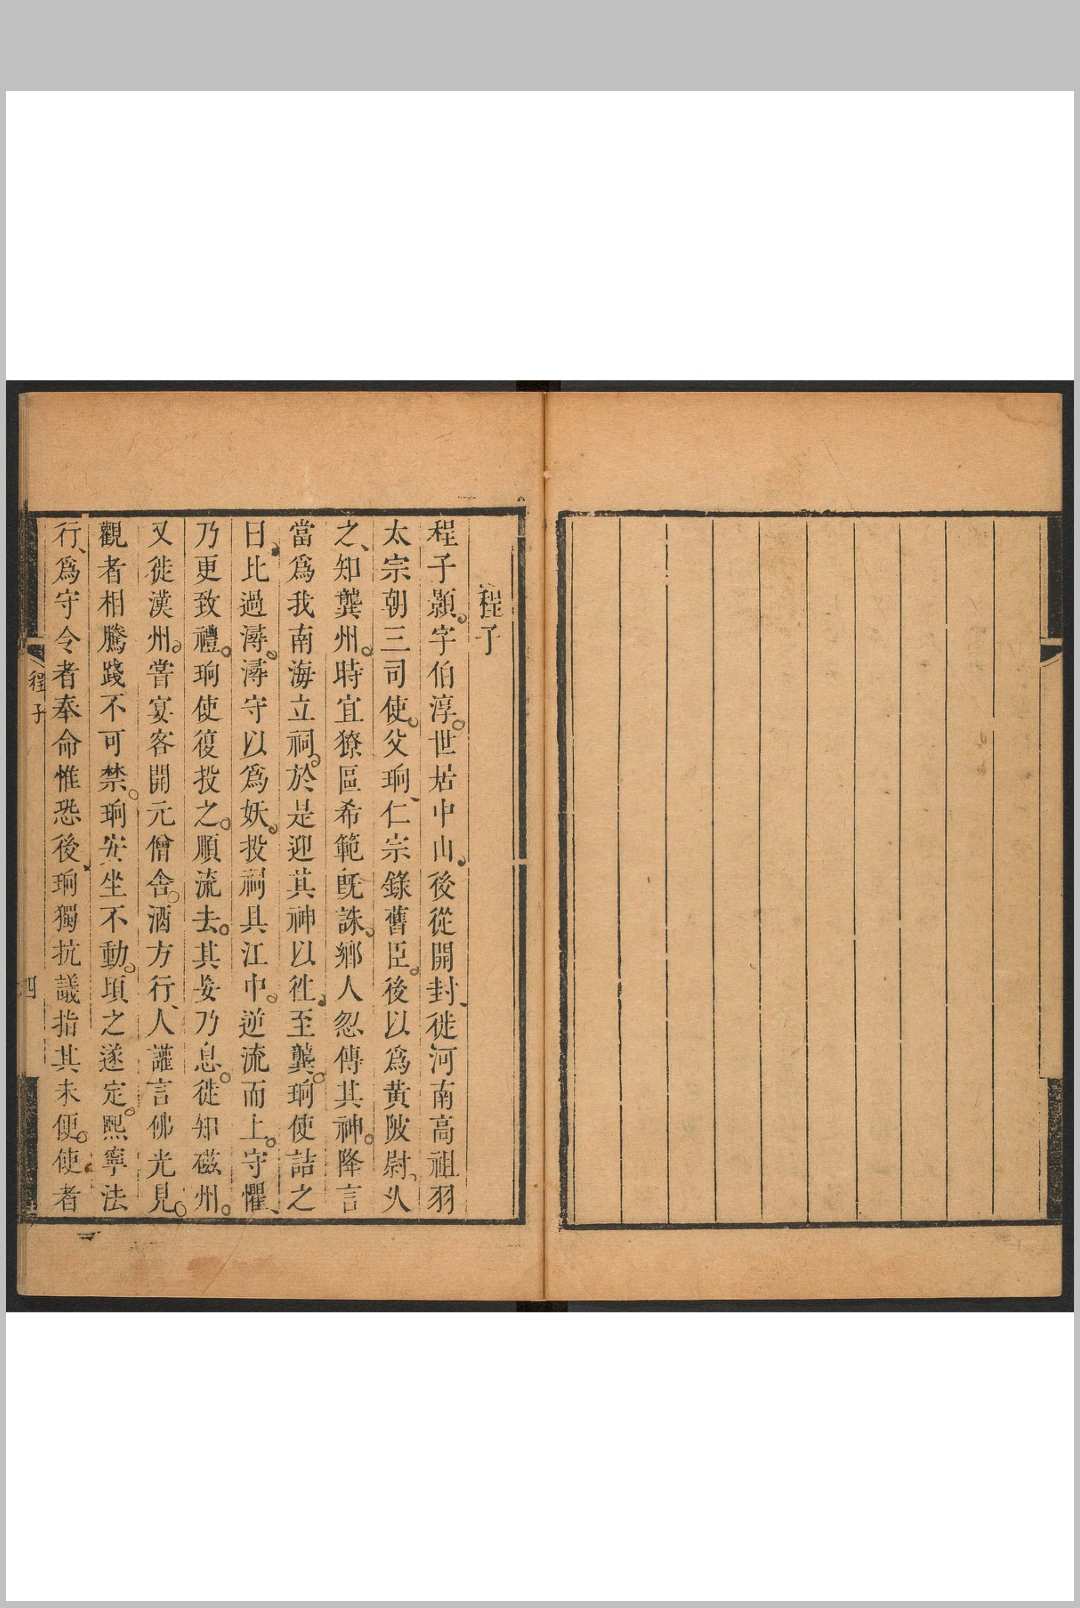 程子
程子顥。字伯淳。世居中山。後從開封、徙河南高祖羽
太宗朝三司使。父珦、仁宗錄舊臣。後以爲黃陂尉、久
之、知龔州。時宜獠區希範旣誅。鄉人忽傳其神。降言
當爲我南海立祠。於是迎其神以徃。至龔。珦使詰之
曰、比過潯。潯守以爲妖。投祠具江中。逆流而上。守懼、
乃更致禮。珦使復投之。順流去。其妄乃息。徙知磁州。
又徙漢州。嘗宴客開元僧舍。酒方行、人讙言佛光見。
觀者相騰踐不可禁。珦安坐不動。頃之遂定。熙寧法
行、爲守令者奉命惟恐後、珦獨抗議指其未便。使者
程子
四